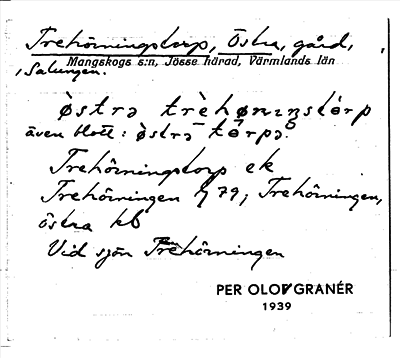 Trehörningstorp, Östra, gård,
Mangskogs s:n, Jösse härad, Värmlands län
i Salungen.
òstrə trèhønıŋstórp
även blott: òstrə tórpə.
Trehörningstorp ek
Trehörningen 79; Trehörningen,
östra kb
Vid sjön Trehörningen
PER OLOF GRANÉR
1939